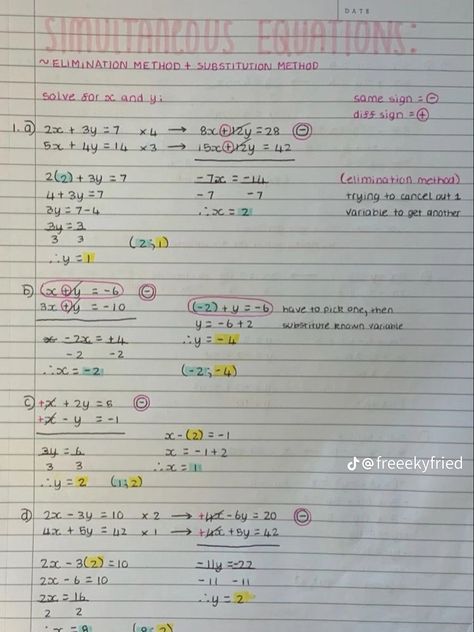 DATE
SIMULTANEOUS EQUATIONS:
~ELIMINATION METHOD + SUBSTITUTION METHOD
Solve for x and y:
same sign = ⊖
diff sign = ⊕
1. a) 2x + 3y = 7 ×4 → 8x + 12y = 28 ⊖
5x + 4y = 14 ×3 → 15x + 12y = 42
2(2) + 3y = 7
4 + 3y = 7
3y = 7-4
3y = 3
3 3
∴ y = 1
-7x = -14
-7 -7
∴ x = 2
(2;1)
(elimination method)
trying to cancel out 1
variable to get another
b) (x + y = -6) ⊖
3x + y = -10
-2x = +4
-2 -2
∴ x = -2
(-2) + y = -6
y = -6+2
∴ y = -4
(-2;-4)
have to pick one, then
substitute known variable
c) +x + 2y = 8 ⊖
+x - y = -1
3y = 6
3 3
∴ y = 2 (1;2)
x-(2) = -1
x = -1+2
∴ x = 1
@freeekyfried
d) 2x - 3y = 10 ×2 → +4x - 6y = 20 ⊖
4x + 5y = 42 ×1 → +4x + 5y = 42
2x - 3(2) = 10
2x - 6 = 10
2x = 16
2 2
∴ x = 8
-11y = -22
-11 -11
∴ y = 2
(8;2)